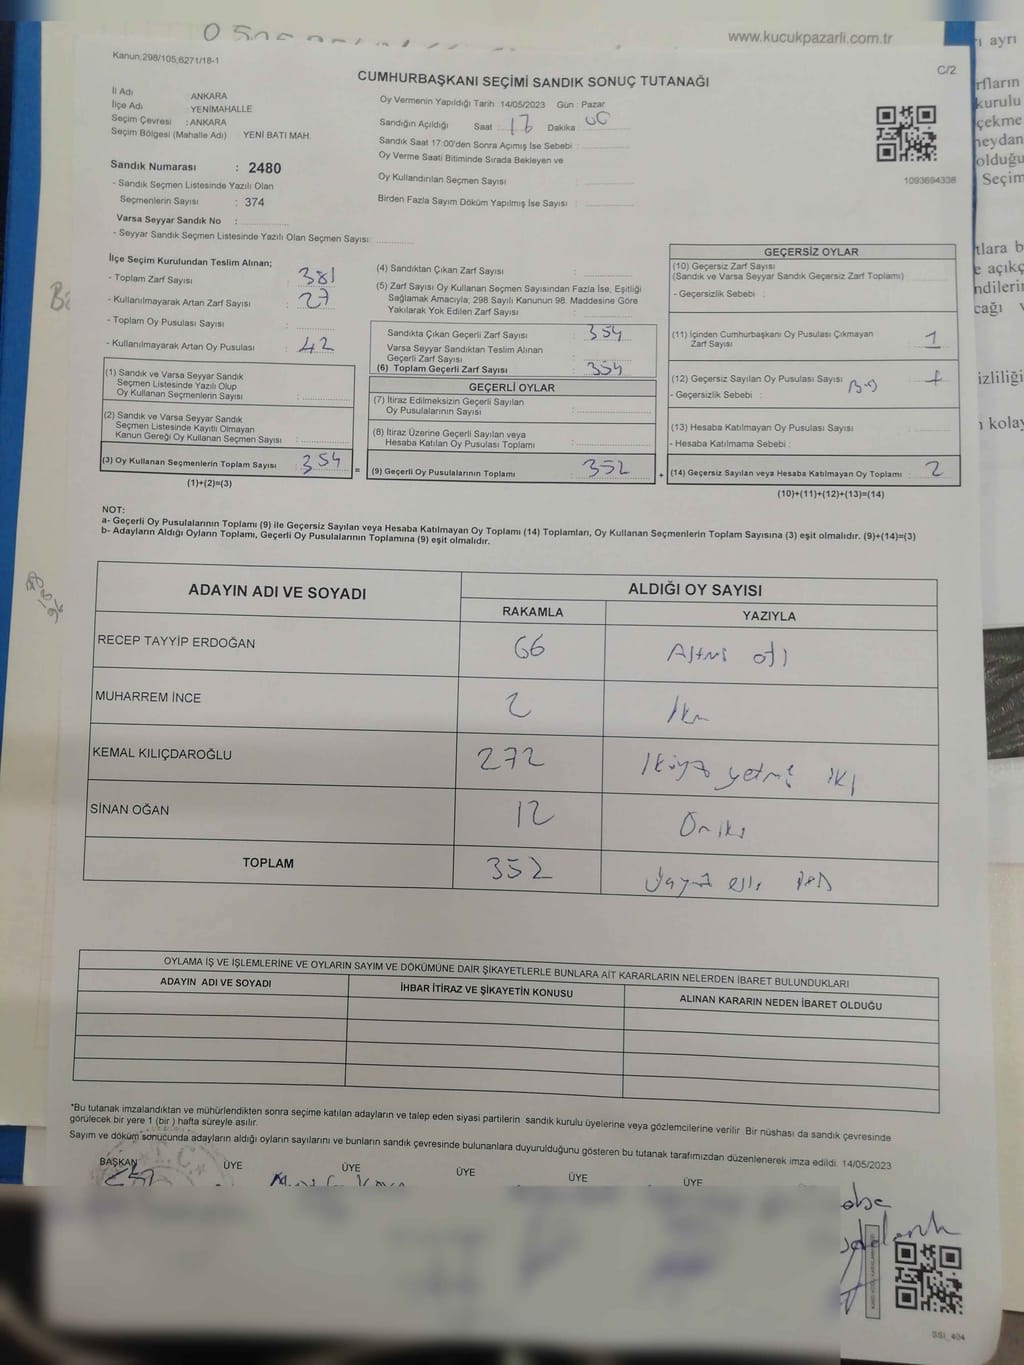 www.kucukpazarli.com.tr
Kanun,298/105,6271/18-1
C/2
CUMHURBAŞKANI SEÇİMİ SANDIK SONUÇ TUTANAĞI
İl Adı : ANKARA
İlçe Adı : YENİMAHALLE
Seçim Çevresi : ANKARA
Seçim Bölgesi (Mahalle Adı) YENİ BATI MAH.
Sandık Numarası : 2480
- Sandık Seçmen Listesinde Yazılı Olan
Seçmenlerin Sayısı : 374
Varsa Seyyar Sandık No :
- Seyyar Sandık Seçmen Listesinde Yazılı Olan Seçmen Sayısı:
Oy Vermenin Yapıldığı Tarih :14/05/2023 Gün : Pazar
Sandığın Açıldığı Saat : 17 Dakika : 00
Sandık Saat 17:00'den Sonra Açımış İse Sebebi :
Oy Verme Saati Bitiminde Sırada Bekleyen ve
Oy Kullandırılan Seçmen Sayısı :
Birden Fazla Sayım Döküm Yapılmış İse Sayısı :
1093694338
İlçe Seçim Kurulundan Teslim Alınan;
- Toplam Zarf Sayısı : 381
- Kullanılmayarak Artan Zarf Sayısı : 27
- Toplam Oy Pusulası Sayısı :
- Kullanılmayarak Artan Oy Pusulası : 42
(1) Sandık ve Varsa Seyyar Sandık
Seçmen Listesinde Yazılı Olup
Oy Kullanan Seçmenlerin Sayısı :
(2) Sandık ve Varsa Seyyar Sandık
Seçmen Listesinde Kayıtlı Olmayan
Kanun Gereği Oy Kullanan Seçmen Sayısı :
(3) Oy Kullanan Seçmenlerin Toplam Sayısı : 354
(1)+(2)=(3)
(4) Sandıktan Çıkan Zarf Sayısı :
(5) Zarf Sayısı Oy Kullanan Seçmen Sayısından Fazla İse, Eşitliği
Sağlamak Amacıyla; 298 Sayılı Kanunun 98. Maddesine Göre
Yakılarak Yok Edilen Zarf Sayısı :
Sandıkta Çıkan Geçerli Zarf Sayısı : 354
Varsa Seyyar Sandıktan Teslim Alınan
Geçerli Zarf Sayısı :
(6) Toplam Geçerli Zarf Sayısı : 354
GEÇERLİ OYLAR
(7) İtiraz Edilmeksizin Geçerli Sayılan
Oy Pusulalarının Sayısı :
(8) İtiraz Üzerine Geçerli Sayılan veya
Hesaba Katılan Oy Pusulası Toplamı :
= (9) Geçerli Oy Pusulalarının Toplamı : 352 +
GEÇERSİZ OYLAR
(10) Geçersiz Zarf Sayısı
(Sandık ve Varsa Seyyar Sandık Geçersiz Zarf Toplamı)
- Geçersizlik Sebebi :
(11) İçinden Cumhurbaşkanı Oy Pusulası Çıkmayan
Zarf Sayısı : 1
(12) Geçersiz Sayılan Oy Pusulası Sayısı :
- Geçersizlik Sebebi :
(13) Hesaba Katılmayan Oy Pusulası Sayısı :
- Hesaba Katılmama Sebebi :
(14) Geçersiz Sayılan veya Hesaba Katılmayan Oy Toplamı : 2
(10)+(11)+(12)+(13)=(14)
NOT:
a- Geçerli Oy Pusulalarının Toplamı (9) ile Geçersiz Sayılan veya Hesaba Katılmayan Oy Toplamı (14) Toplamları, Oy Kullanan Seçmenlerin Toplam Sayısına (3) eşit olmalıdır. (9)+(14)=(3)
b- Adayların Aldığı Oyların Toplamı, Geçerli Oy Pusulalarının Toplamına (9) eşit olmalıdır.
ADAYIN ADI VE SOYADI ALDIĞI OY SAYISI
RAKAMLA YAZIYLA
RECEP TAYYİP ERDOĞAN 66 Altmış altı
MUHARREM İNCE 2 İki
KEMAL KILIÇDAROĞLU 272 İkiyüz yetmiş iki
SİNAN OĞAN 12 Oniki
TOPLAM 352
OYLAMA İŞ VE İŞLEMLERİNE VE OYLARIN SAYIM VE DÖKÜMÜNE DAİR ŞİKAYETLERLE BUNLARA AİT KARARLARIN NELERDEN İBARET BULUNDUKLARI
ADAYIN ADI VE SOYADI İHBAR İTİRAZ VE ŞİKAYETİN KONUSU ALINAN KARARIN NEDEN İBARET OLDUĞU
*Bu tutanak imzalandıktan ve mühürlendikten sonra seçime katılan adayların ve talep eden siyasi partilerin sandık kurulu üyelerine veya gözlemcilerine verilir Bir nüshası da sandık çevresinde
görülecek bir yere 1 (bir ) hafta süreyle asılır.
Sayım ve döküm sonucunda adayların aldığı oyların sayılarını ve bunların sandık çevresinde bulunanlara duyurulduğunu gösteren bu tutanak tarafımızdan düzenlenerek imza edildi. 14/05/2023
BAŞKAN ÜYE ÜYE ÜYE ÜYE ÜYE
T.C.
SSI_404